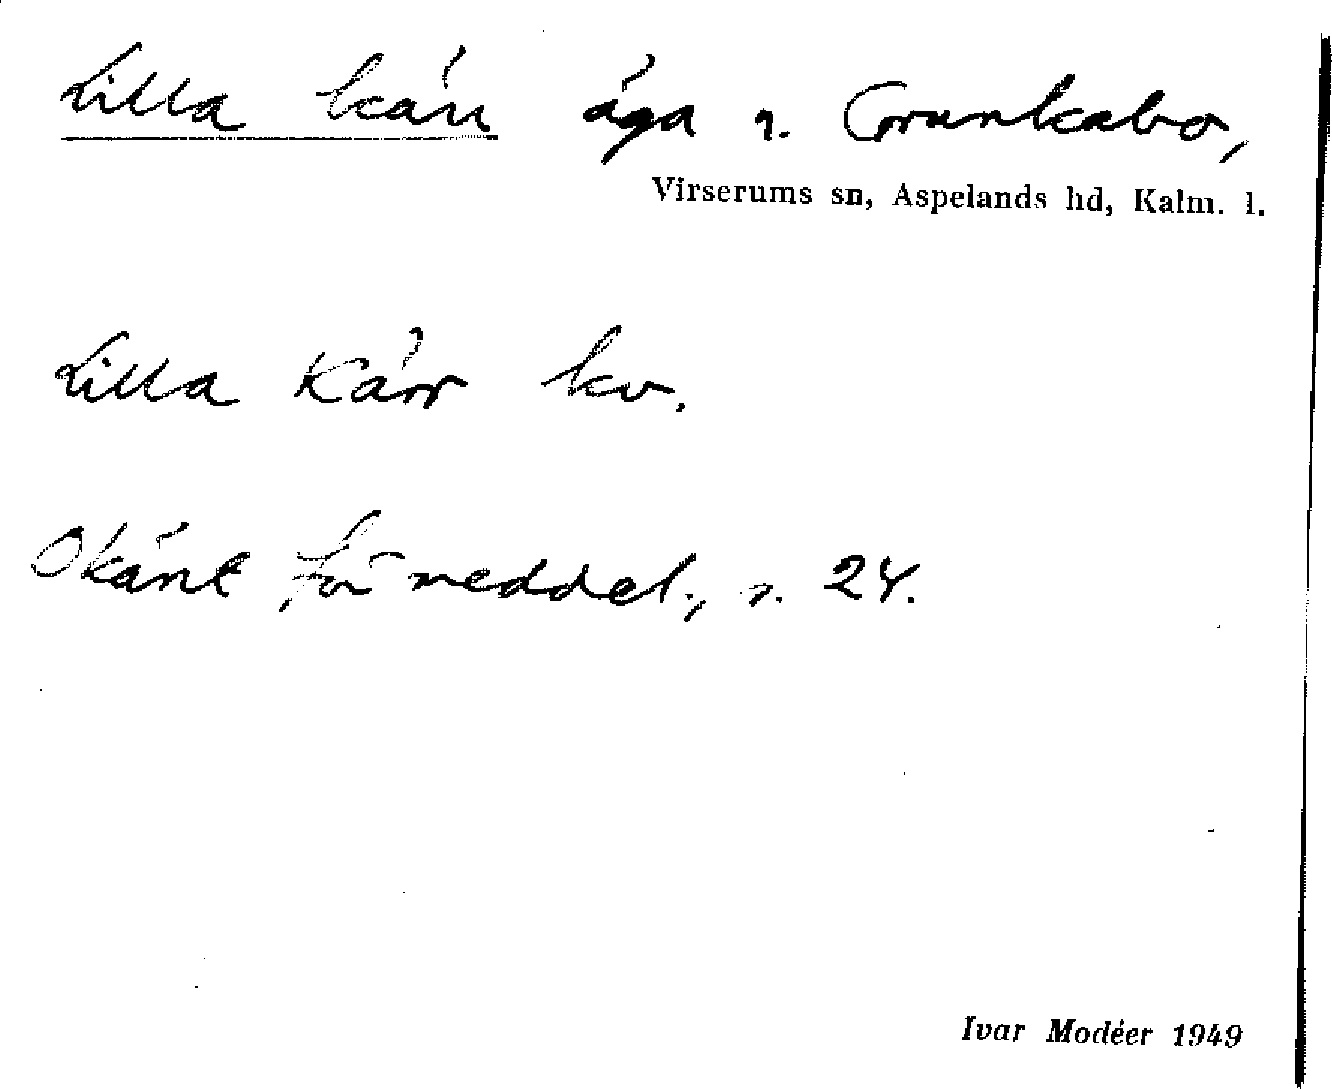 Lilla kärr äga r. Grunkabo,
Virserums sn, Aspelands hd, Kalm. l.
Lilla Kärr kv.
Okänt för meddel., r. 24.
Ivar Modéer 1949